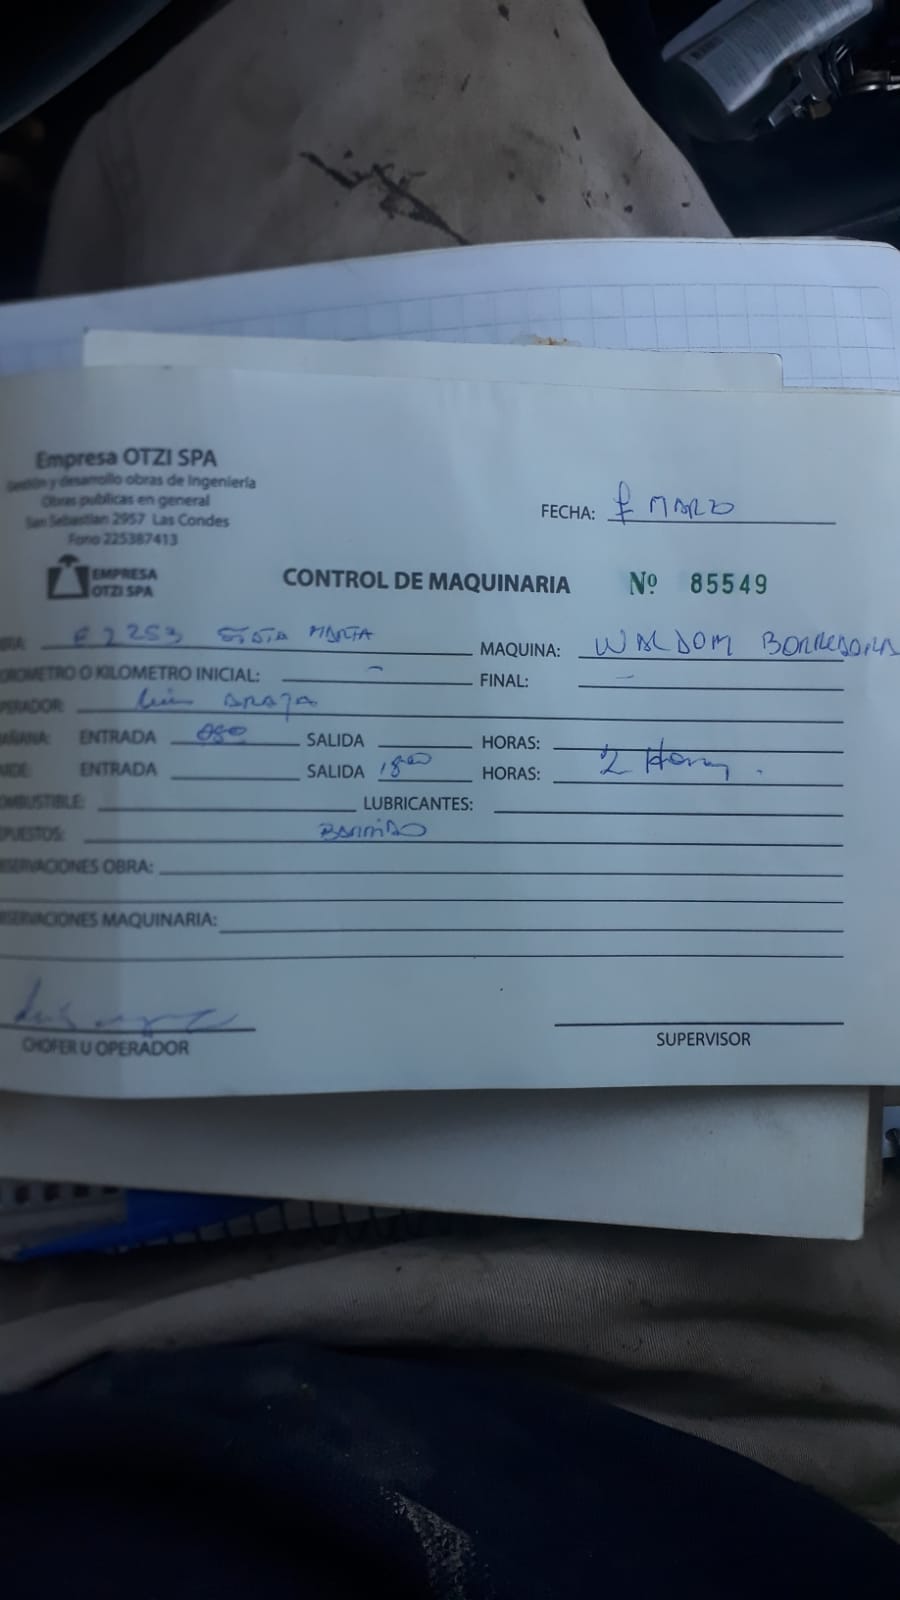 Empresa OTZI SPA
Gestión y desarrollo obras de Ingeniería
Obras publicas en general
San Sebastian 2957 Las Condes
Fono 225387413
EMPRESA
OTZI SPA
FECHA: MARZO
CONTROL DE MAQUINARIA Nº 85549
2253 MARTA MAQUINA: WALDOM
OROMETRO O KILOMETRO INICIAL: - FINAL: -
PERADOR: Luis ARAYA
AÑANA: ENTRADA 080 SALIDA HORAS:
ARDE: ENTRADA SALIDA 1800 HORAS: 2 Horas.
OMBUSTIBLE: LUBRICANTES:
PUESTOS: BARRIDO
SERVACIONES OBRA:
SERVACIONES MAQUINARIA:
CHOFER U OPERADOR
SUPERVISOR